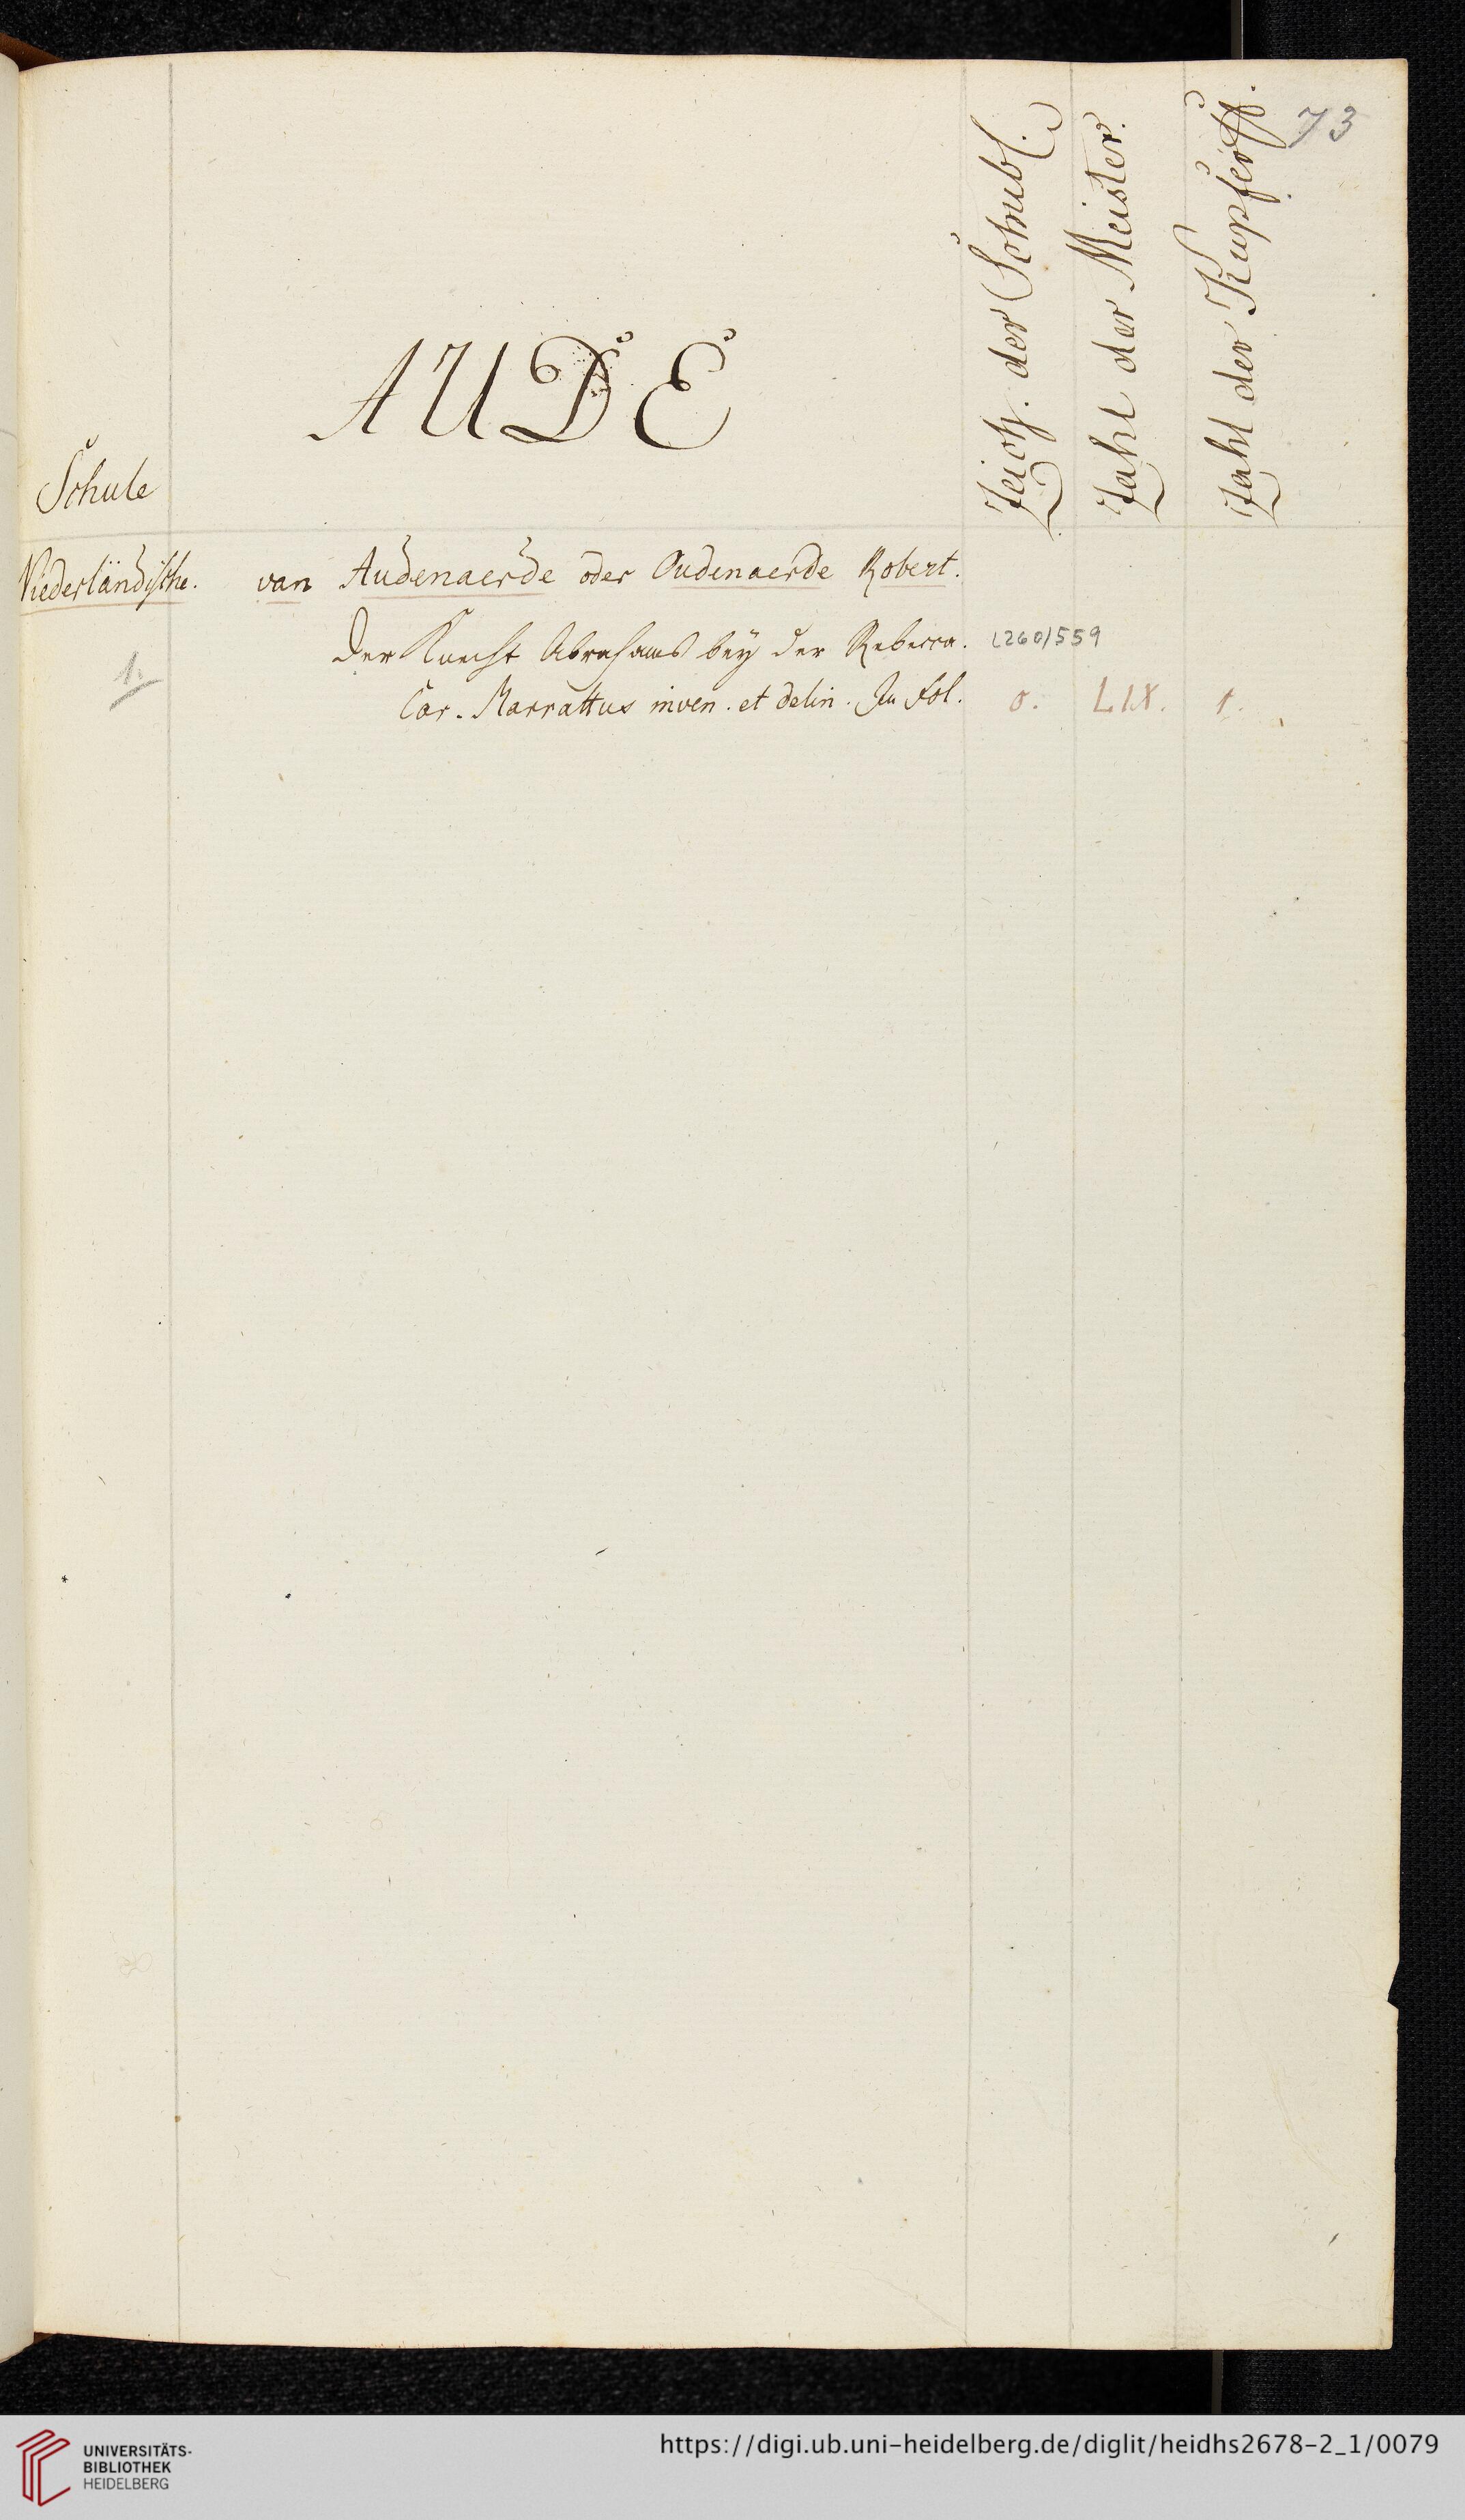 73
AUDE
Schule
Zeich. der Schubl.
Zahl der Meister.
Zahl der Kupferst.
Niederländische. van Audenaerde oder Oudenaerde Robert.
Der Knecht Abrahams bey der Rebecca. L260/559
1.
Car. Marrattus inven. et delin. In fol. o. LIX. 1.
UNIVERSITÄTS-
BIBLIOTHEK
HEIDELBERG
https://digi.ub.uni-heidelberg.de/diglit/heidhs2678-2_1/0079